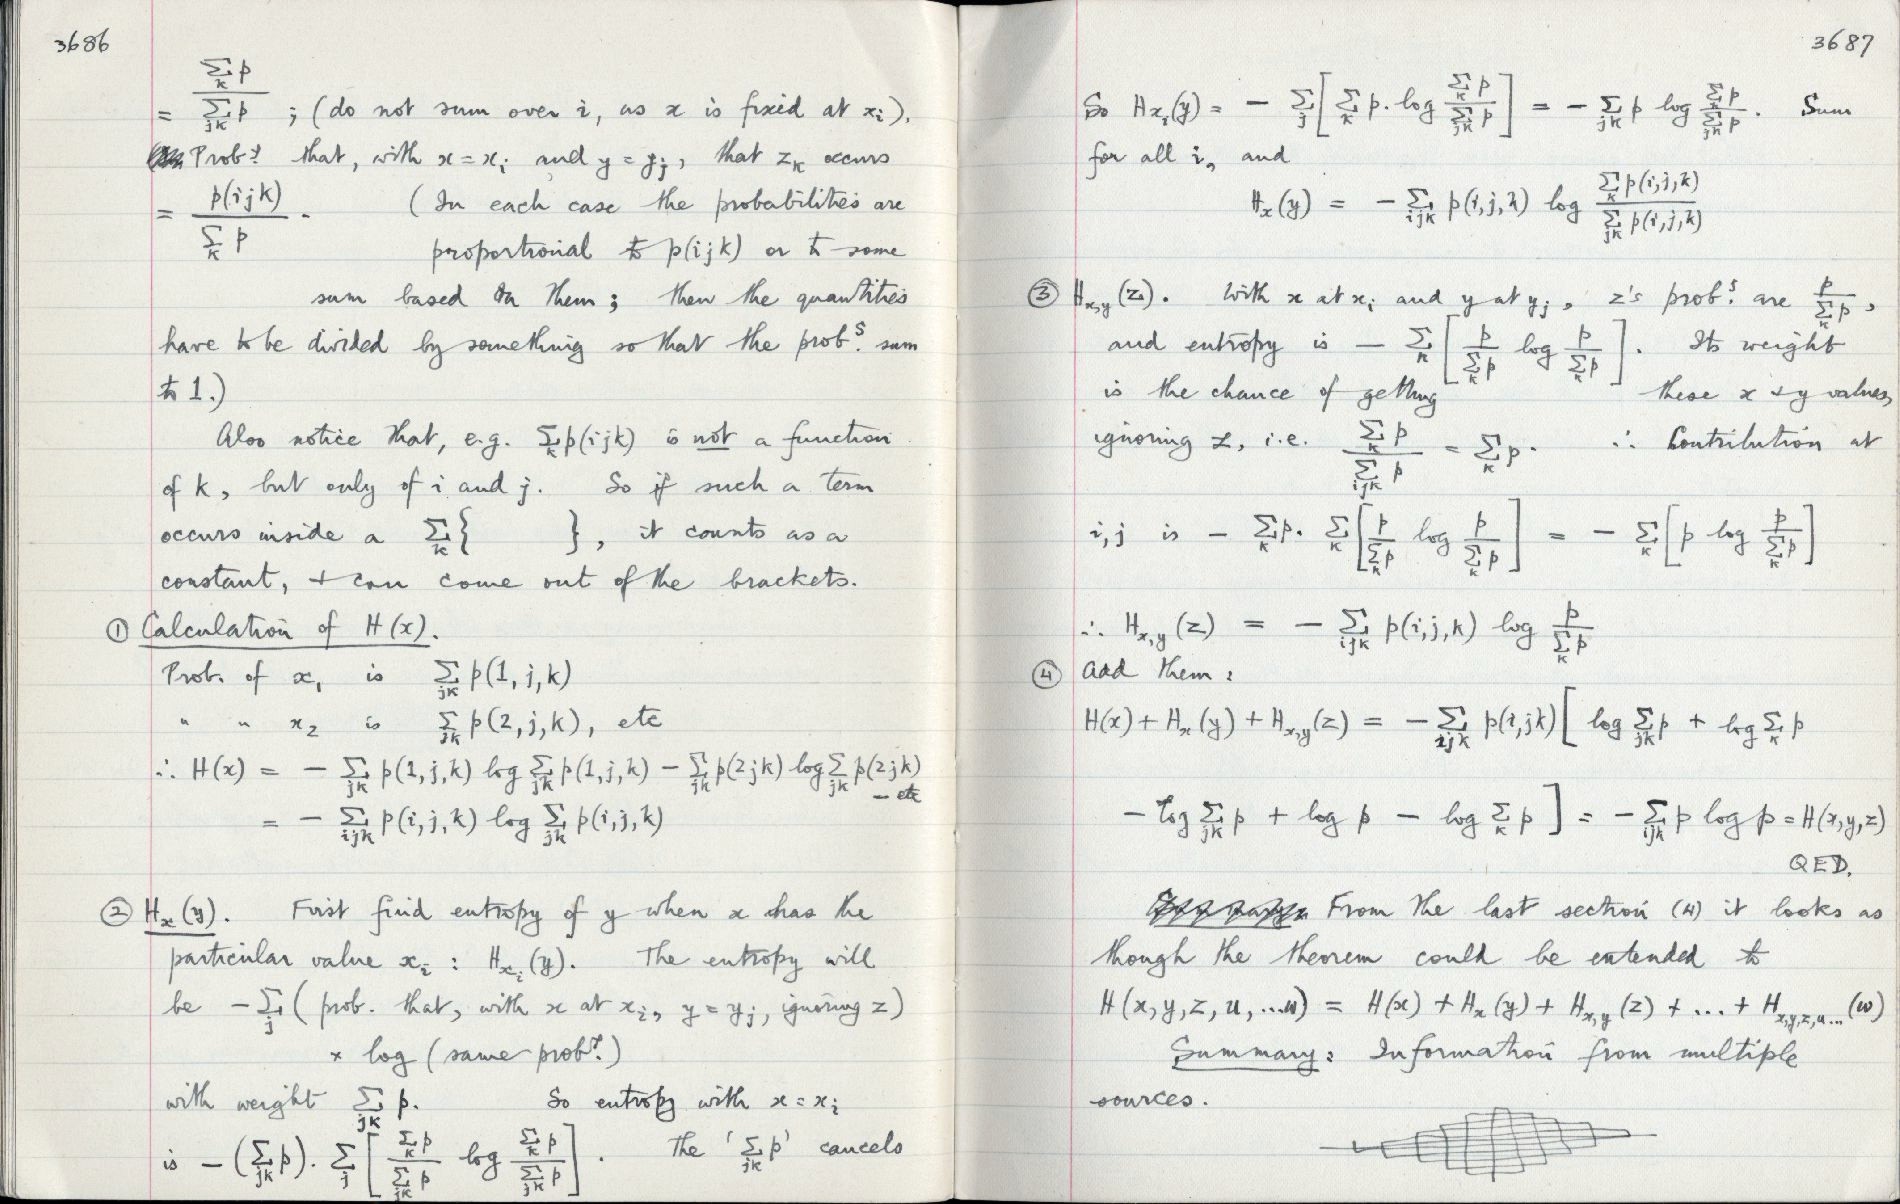 3686
= Σ_k p / Σ_jk p ; (do not sum over i, as x is fixed at x_i).
Prob.y that, with x = x_i and y = y_j, that z_k occurs
= p(ijk) / Σ_k p . (In each case the probabilities are
proportional to p(ijk) or to some
sum based on them; then the quantities
have to be divided by something so that the prob.s sum
to 1.)
Also notice that, e.g. Σ_k p(ijk) is not a function
of k, but only of i and j. So if such a term
occurs inside a Σ_k { }, it counts as a
constant, + can come out of the brackets.
① Calculation of H(x).
Prob. of x_1 is Σ_jk p(1, j, k)
" " x_2 is Σ_jk p(2, j, k), etc
∴ H(x) = − Σ_jk p(1, j, k) log Σ_jk p(1, j, k) − Σ_jk p(2jk) log Σ_jk p(2jk)
− etc
= − Σ_ijk p(i, j, k) log Σ_jk p(i, j, k)
② H_x(y). First find entropy of y when x has the
particular value x_i : H_{x_i}(y). The entropy will
be − Σ_j ( prob. that, with x at x_i, y = y_j, ignoring z)
× log (same prob.y)
with weight Σ_jk p. So entropy with x = x_i
is − (Σ_jk p) . Σ_j [ Σ_k p / Σ_jk p log Σ_k p / Σ_jk p ] . The 'Σ_jk p' cancels
3687
So H_{x_i}(y) = − Σ_j [ Σ_k p . log Σ_k p / Σ_jk p ] = − Σ_jk p log Σ_k p / Σ_jk p . Sum
for all i, and
H_x(y) = − Σ_ijk p(i, j, k) log Σ_k p(i, j, k) / Σ_jk p(i, j, k)
③ H_{x,y}(z). With x at x_i and y at y_j, z's prob.s are p / Σ_k p ,
and entropy is − Σ_k [ p / Σ_k p log p / Σ_k p ] . Its weight
is the chance of getting these x + y values,
ignoring z, i.e. Σ_k p / Σ_ijk p = Σ_k p . ∴ Contribution at
i, j is − Σ_k p . Σ_k [ p / Σ_k p log p / Σ_k p ] = − Σ_k [ p log p / Σ_k p ]
∴ H_{x,y}(z) = − Σ_ijk p(i, j, k) log p / Σ_k p
④ Add them :
H(x) + H_x(y) + H_{x,y}(z) = − Σ_ijk p(i, jk) [ log Σ_jk p + log Σ_k p
− log Σ_jk p + log p − log Σ_k p ] = − Σ_ijk p log p = H(x, y, z)
QED.
From the last section (4) it looks as
though the theorem could be extended to
H(x, y, z, u, ... w) = H(x) + H_x(y) + H_{x,y}(z) + ... + H_{x,y,z,u...}(w)
Summary: Information from multiple
sources.